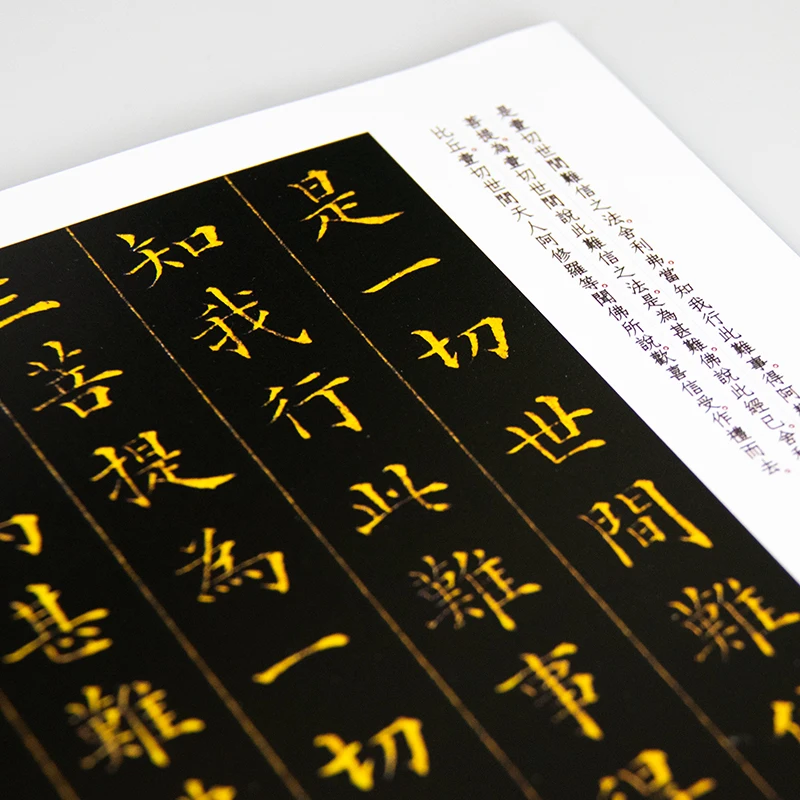 是壹切世間難信之法。舍利弗。當知我行此難事。得阿
菩提。為壹切世間說此難信之法。是為甚難。佛說此經已。舍
比丘。壹切世間天人阿修羅等。聞佛所說。歡喜信受。作禮而去。
是一切世間難
知我行此難事得
三菩提為一切
甚難